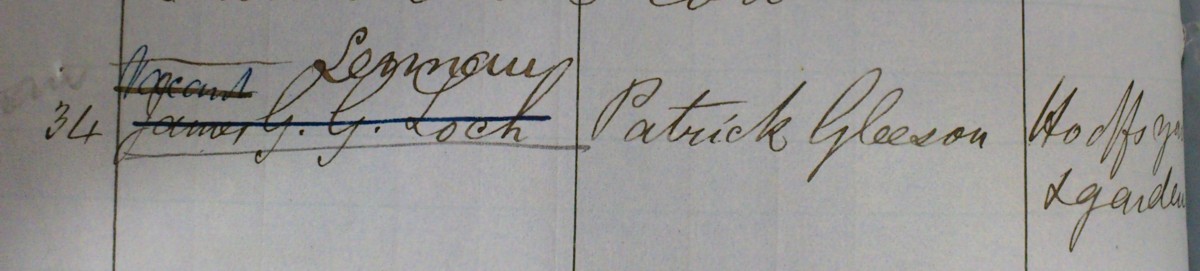 Vacant Lennan
34 James G. G. Loch Patrick Gleeson Ho offs ya
& garden